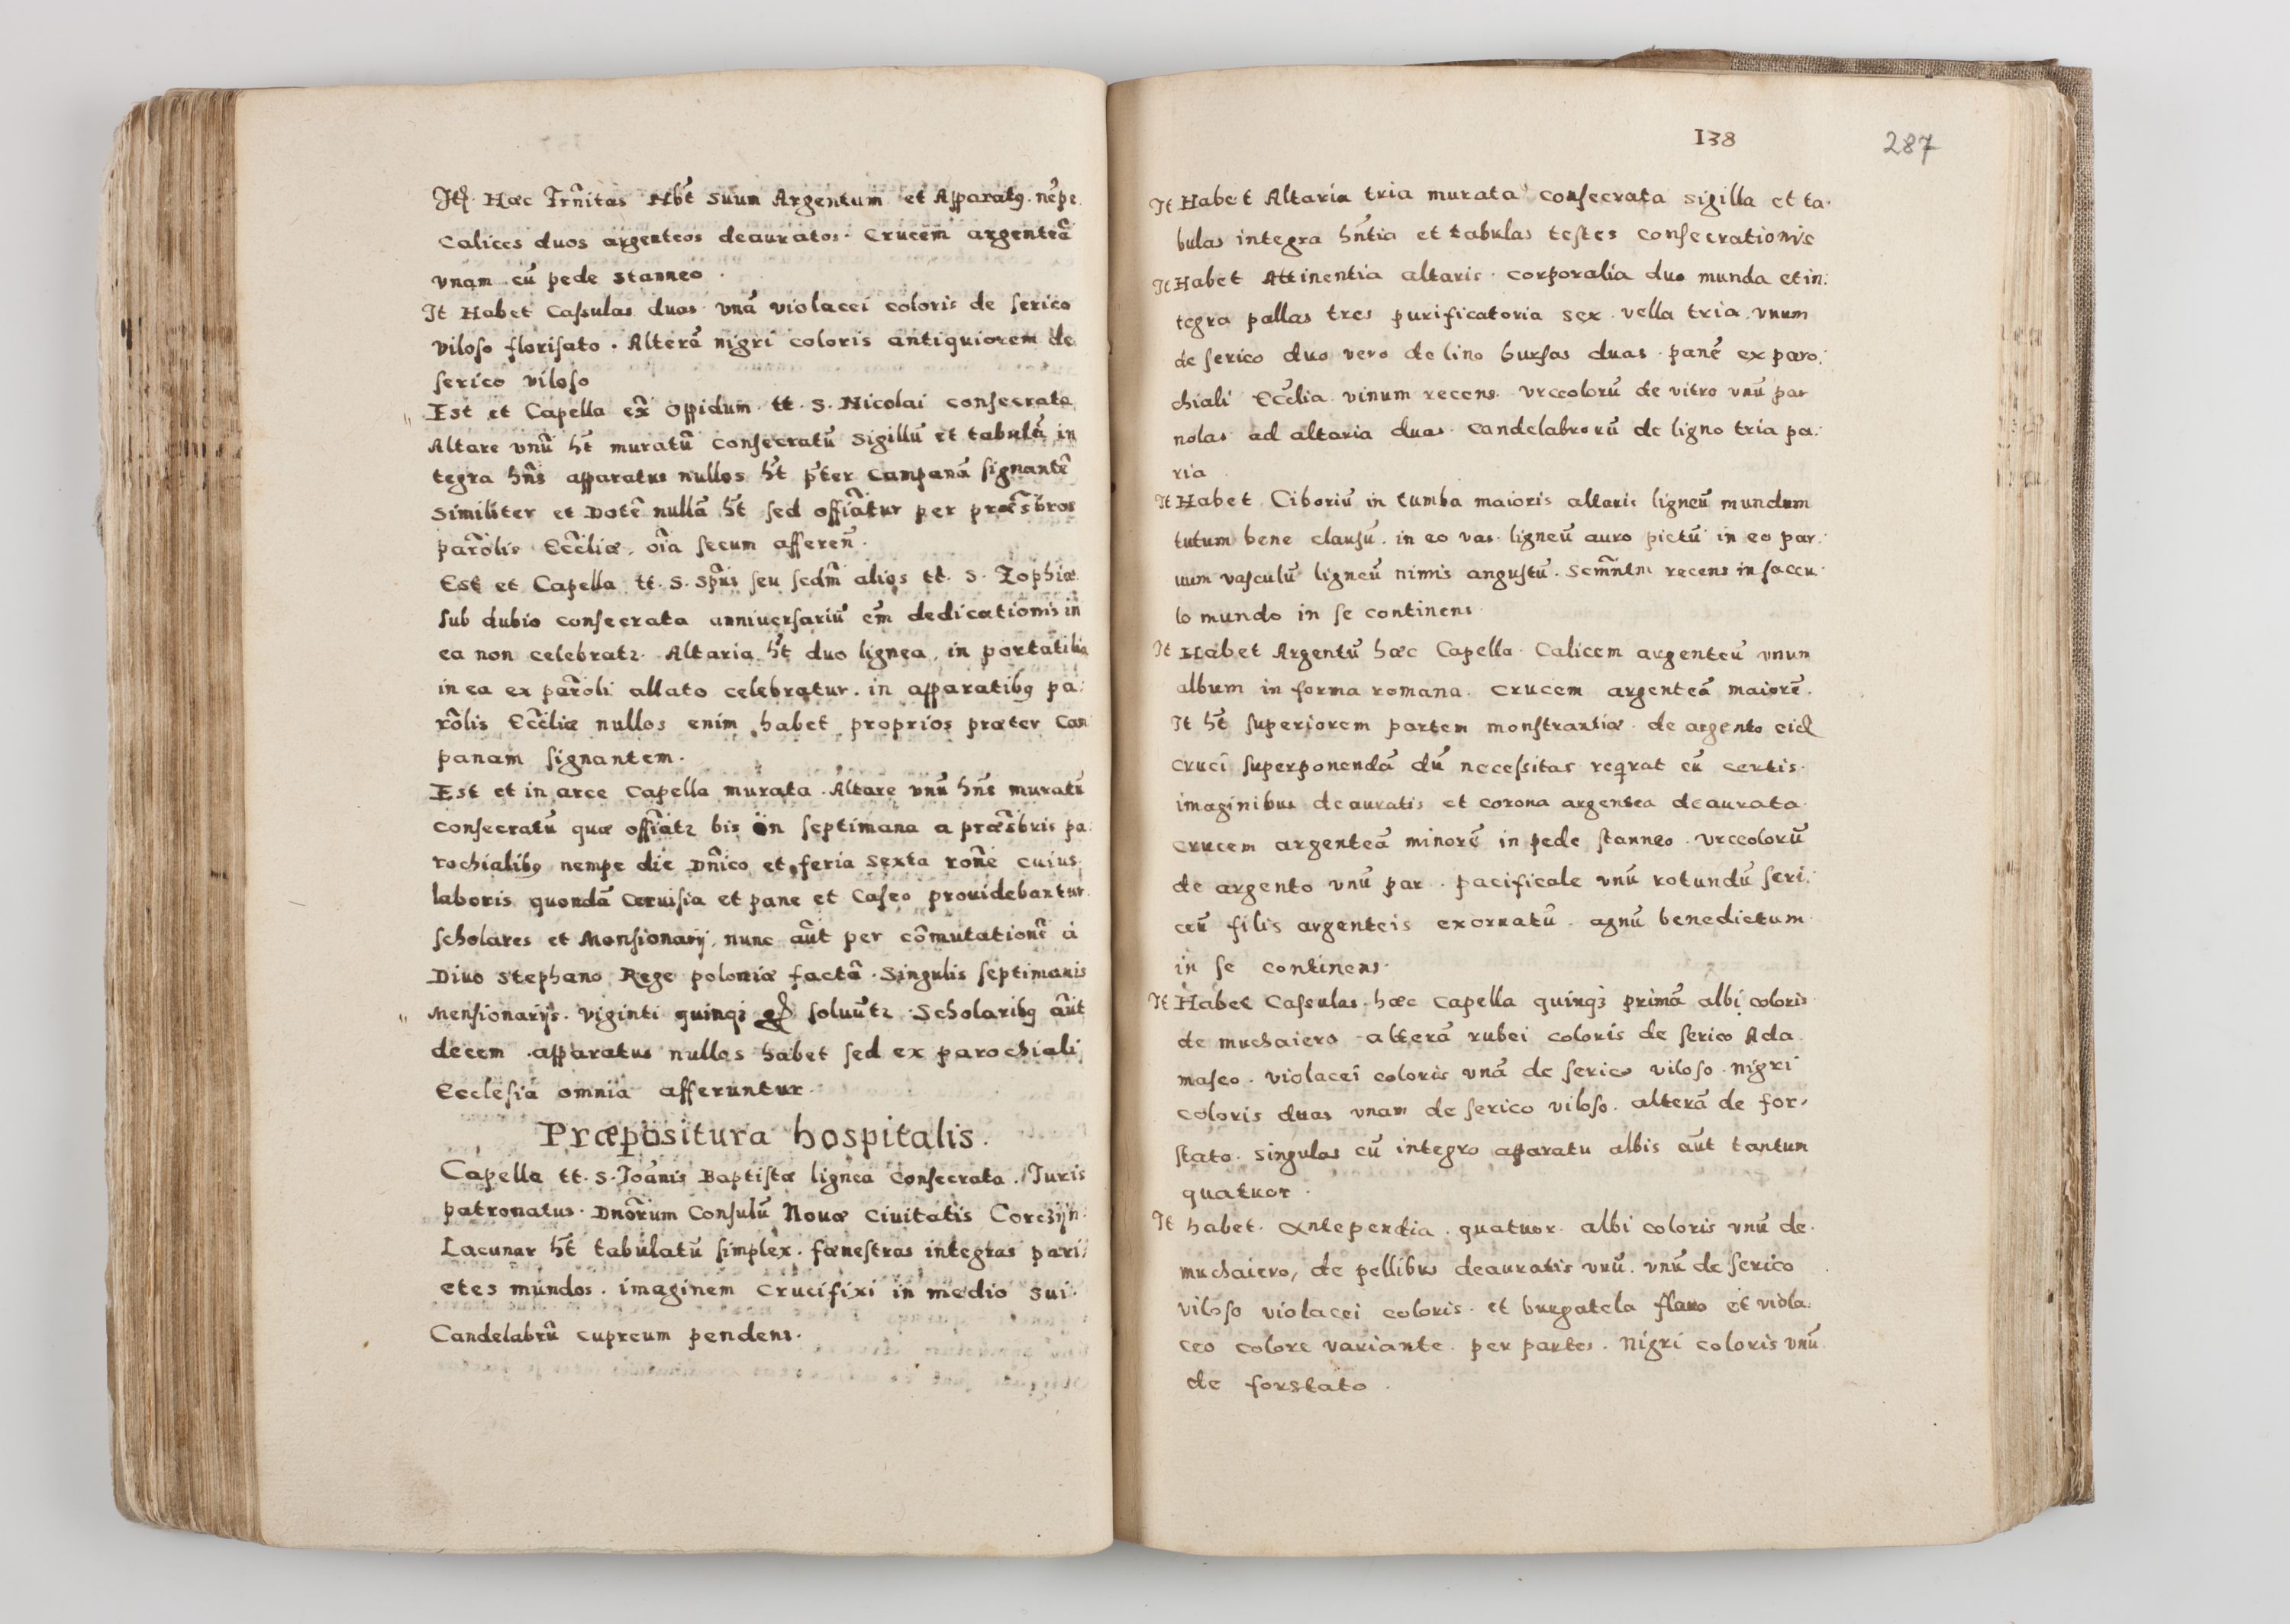 Itẽ. Hæc Trñitas Hb̃t suum Argentum et Apparatꝯ. nẽpe
Calices duos argenteos deauratos. Crucem argenteã
vnam cũ pede stanneo.
It Habet Caſsulas duas. vnã violacei coloris de ſerico
viloſo floriſato. Alterã nigri coloris antiquiorem de
ſerico viloſo
Est et Capella ex̃ oppidum tt. S. Nicolai conſecrata
Altare vnũ h̃t muratũ conſecratũ sigillũ et tabulã in
tegra hñs apparatus nullos h̃t p̃ter campanã ſignantẽ
Similiter et Dotẽ nullã h̃t ſed offi̴atur per præs̃bros
par̃olis Ecc̃liæ, oĩa ſecum afferen̄.
Est et Capella tt. S. Spũs ſeu ſedm̃ alios tt. S. Zophiæ
ſub dubio conſecrata anniuerſariũ em̃ dedicationis in
ea non celebratꝛ. Altaria h̃t duo lignea, in portatilia
in ea ex par̃oli allato celebratur. in apparatibꝯ pa:
rõlis Ecc̃liæ nullos enim habet proprios præter Cam
panam ſignantem.
Est et in arce Capella murata. Altare vnũ hñs muratũ
conſecratũ quæ offi̴atꝛ bis in ſeptimana a præs̃bris pa:
rochialibꝯ nempe die Dñico et feria sexta rone cuius
laboris quondã Ceruiſia et pane et Caſeo prouidebantur
ſcholares et Manſionarij, nunc aũt per cõmutationẽ à
Diuo Stephano Rege poloniæ factã. Singulis ſeptimanis
Menſionarijs. viginti quinqꝫ gr̃ ſoluũtꝛ. Scholaribꝯ aũt
decem. apparatus nullos habet ſed ex parochiali
Eccleſia omnia afferuntur.
Præpositura hospitalis.
Capella tt. S. Ioãnis Baptiſtæ lignea Conſecrata. Iuris
patronatus. Dnõrum Conſulũ Nouæ Ciuitatis Corczijn.
Lacunar h̃t tabulatũ ſimplex. fæneſtras integras pari:
etes mundos. imaginem Crucifixi in medio sui.
Candelabrũ cupreum pendens.
138
287
It Habet Altaria tria murata conſecrata sigilla et ta.
bulas integra hñtia et tabulas teſtes conſecrationis
It Habet Attinentia altaris. corporalia duo munda et in:
tegra pallas tres purificatoria sex. vella tria. vnum
de ſerico duo vero de lino burſas duas. panẽ ex paro:
chiali Ecc̃lia. vinum recens. vrceolorũ de vitro vnũ par
nolas ad altaria duas. candelabrorũ de ligno tria pa:
ria
It Habet Ciboriũ in tumba maioris altaris ligneũ mundum
tutum bene clauſũ. in eo vas ligneũ auro pictũ in eo par:
uum vaſculũ ligneũ nimis anguſtũ. Scm̃ntm recens in ſaccu
lo mundo in ſe continens.
It Habet Argentũ hæc Capella. Calicem argenteũ vnum
album in forma romana. crucem argenteã maiorẽ.
It h̃t ſuperiorem partem monſtrantiæ de argento eid̃
cruci ſuperponendã dũ neceſsitas reqrat cũ certis.
imaginibus deauratis et corona argentea deaurata.
crucem argenteã minorẽ in pede ſtanneo. vrceolorũ
de argento vnũ par. pacificale vnũ rotundũ ſeri:
ceũ filis argenteis exornatũ. agnũ benedictum
in ſe continens.
It Habet Caſsulas hæc Capella quinqꝫ primã albi coloris
de muchaiero. alterã rubei coloris de ſerico Ada
maſco. violacei coloris vnã de ſerico viloſo. nigri
coloris duas vnam de ſerico viloſo. alterã de for,
ſtato. singulas cũ integro apparatu albis aũt tantum
quatuor.
It habet. Antependia. quatuor. albi coloris vnũ de.
muchaiero, de pellibus deauratis vnũ. vnũ de ſerico
viloſo violacei coloris. et burgatela flauo et viola:
ceo colore variante. per partes. Nigri coloris vnũ
de forstato.